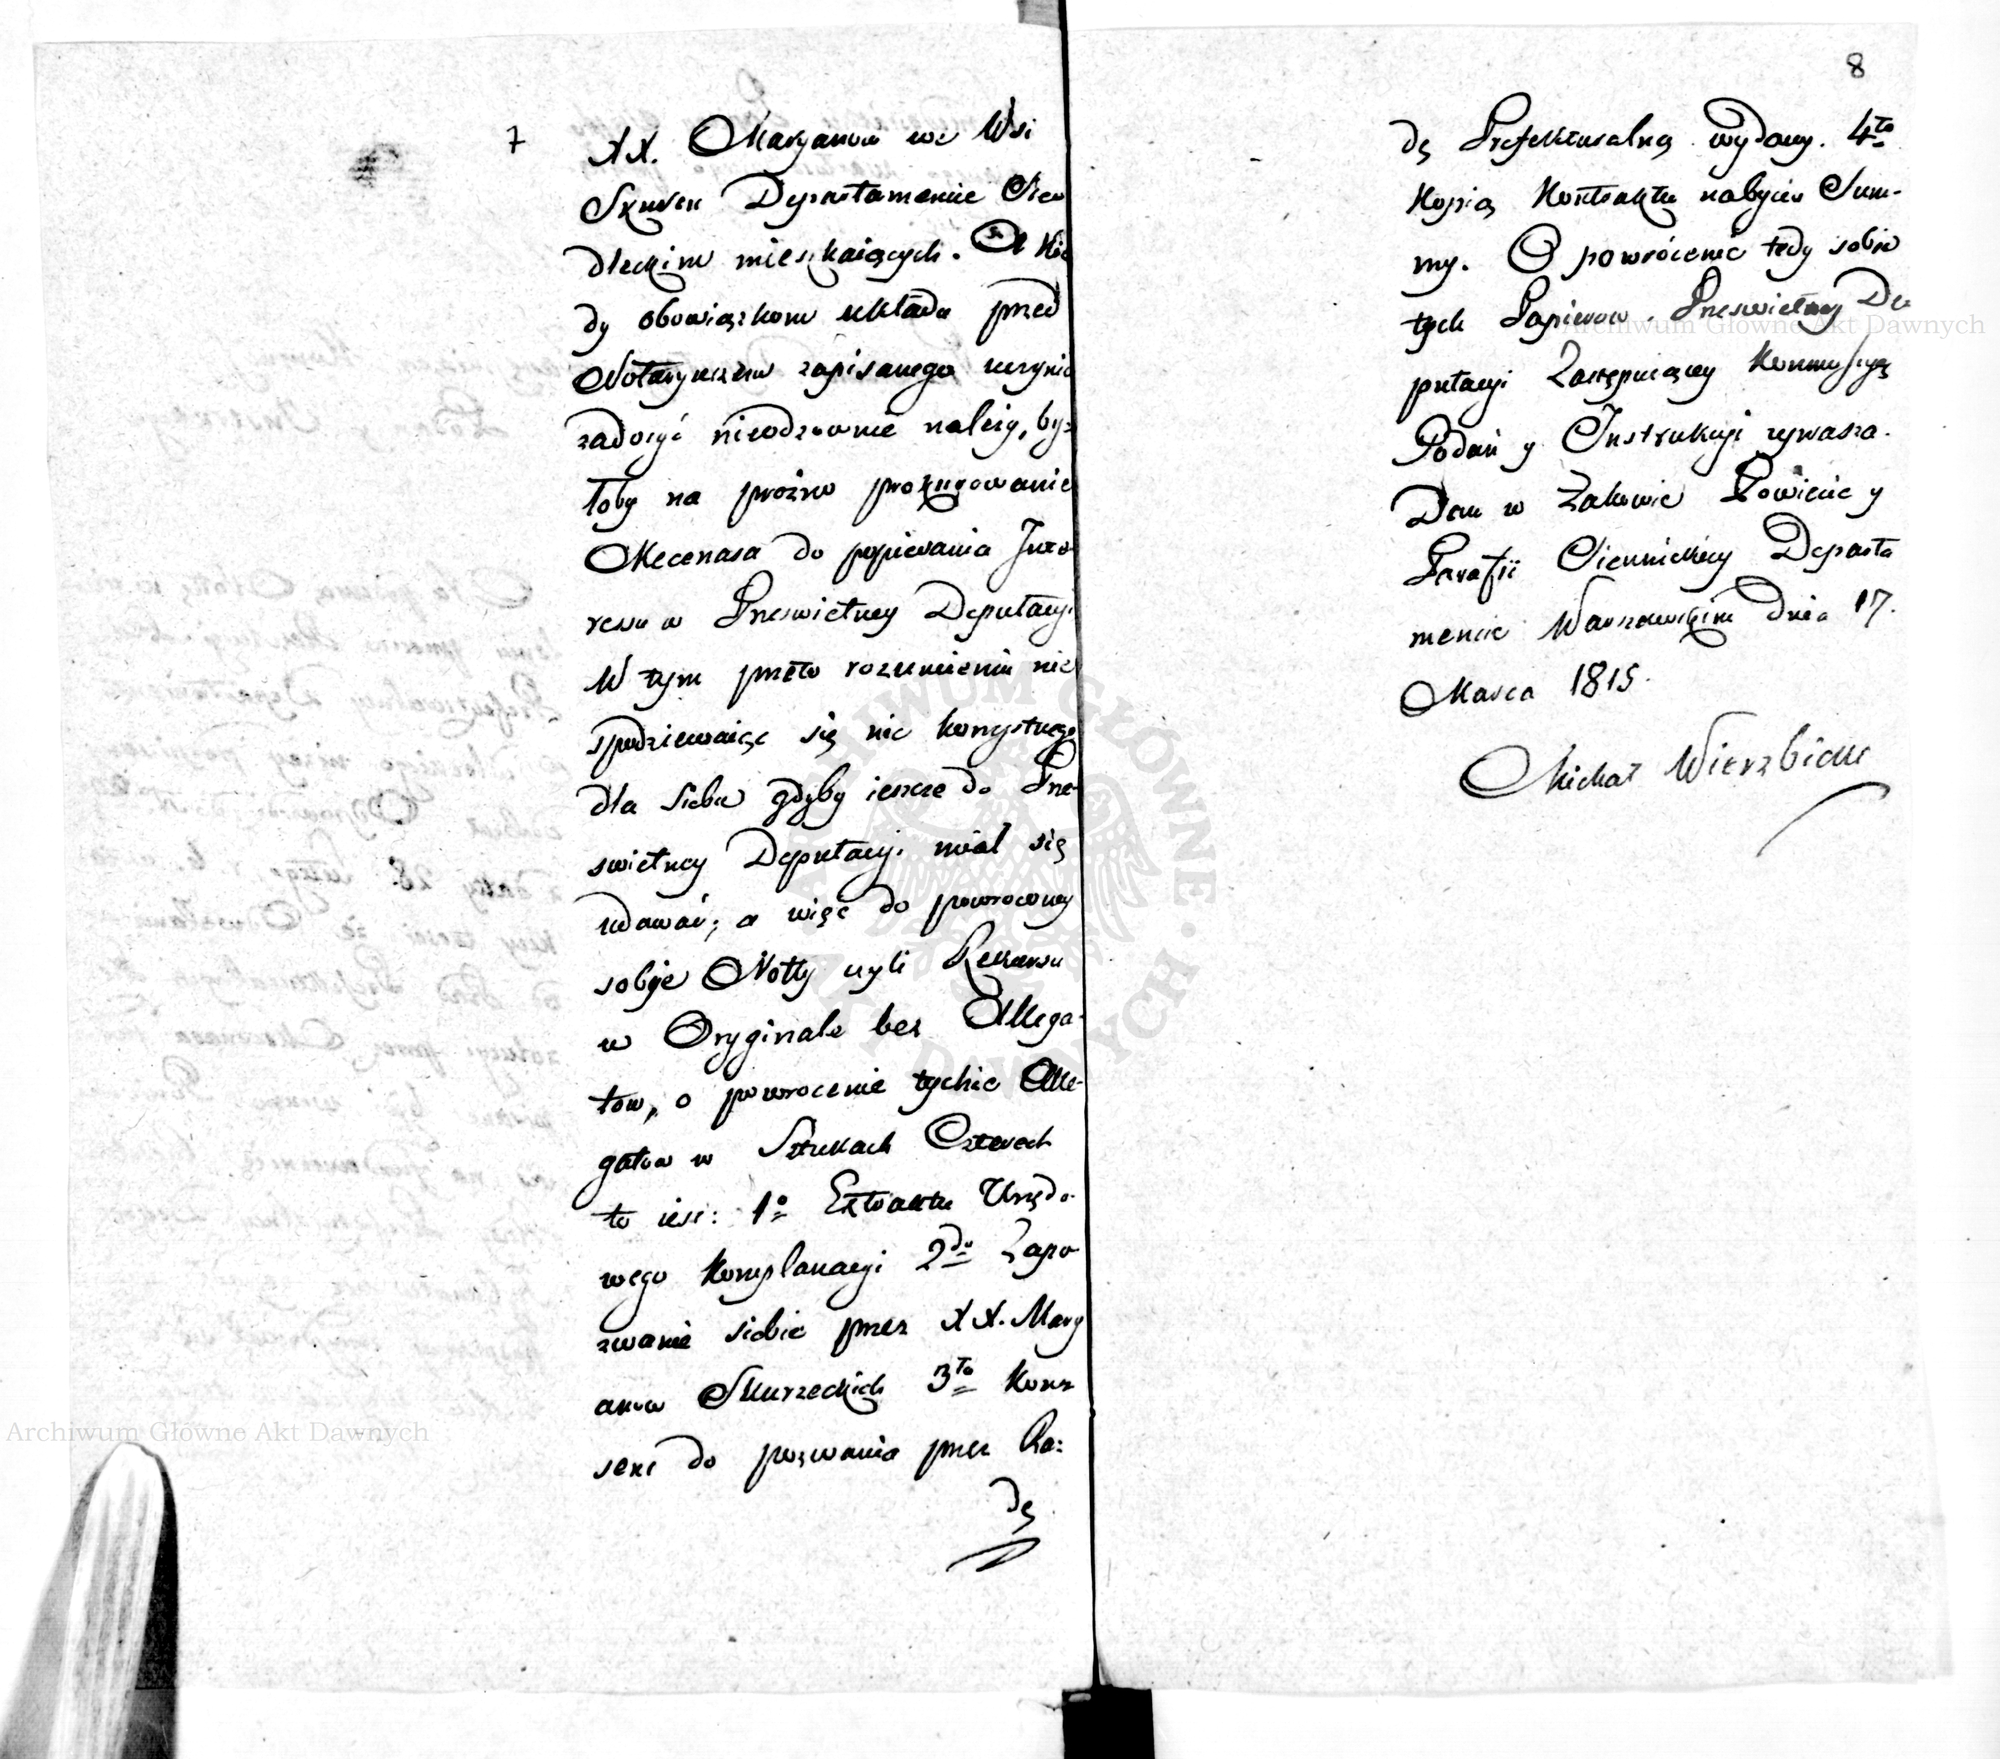 7
XX. Maryanow we Wsi
Skurcu Departamencie Sie
dleckim mieszkaiących. A kie
dy obowiązkom układu przed
Notaryuszem zapisanego uczynić
zadosyć nieodzownie należy, by-
łoby na prożno prokurowanie
Mecenasa do popierania Inte-
ressu w Prześwietney Deputacyi
W tym przeto rozumieniu nie
spodziewaiąc się nic korzystnego
dla siebie gdyby ieszcze do Prze-
swietney Deputacyi miał się
udawać; a więc do powrocony
sobie Notty czyli Rekursu
w Oryginale bez Allega-
tow, o powrocenie tychże Alle-
gatow w Sztukach Czterech
to iest: 1o Extraktu Urzędo-
wego Komplanacyi 2do Zapo
zwanie siebie przez XX. Mary
anow Skurzeckich 3to Kon
sens do pozwania przez Ra:
dę
8
dę Prefekturalną wydany. 4to
Kopią Kontraktu nabycia Sum-
my. O powrócenie tedy sobie
tych Papierow. Prześwietney De
putacyi Zastępuiącey Kommissyą
Podań y Instrukcyi wzywasza.
Dan w Żakowie Powiecie y
Parafii Siennickiey Departa
mencie Warszawskim dnia 17.
Marca 1815.
Michał Wierzbicki
Archiwum Główne Akt Dawnych
Archiwum Główne Akt Dawnych
ARCHIWUM GŁÓWNE AKT DAWNYCH